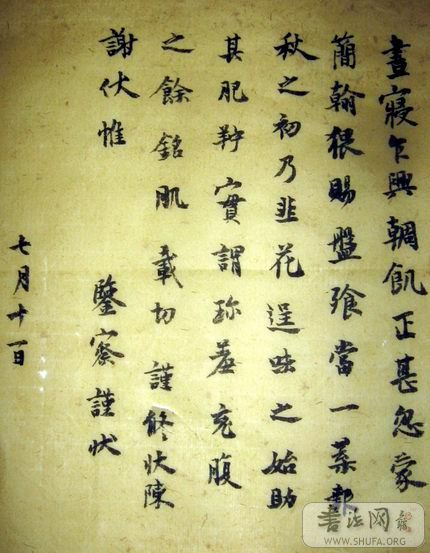 晝寢乍興輖飢正甚忽蒙
簡翰猥賜盤飧當一葉報
秋之初乃韭花逞味之始助
其肥羜實謂珍羞充腹
之餘銘肌載切謹修狀陳
謝伏惟 鑒察謹狀
七月十一日
書法网
WWW.SHUFA.ORG